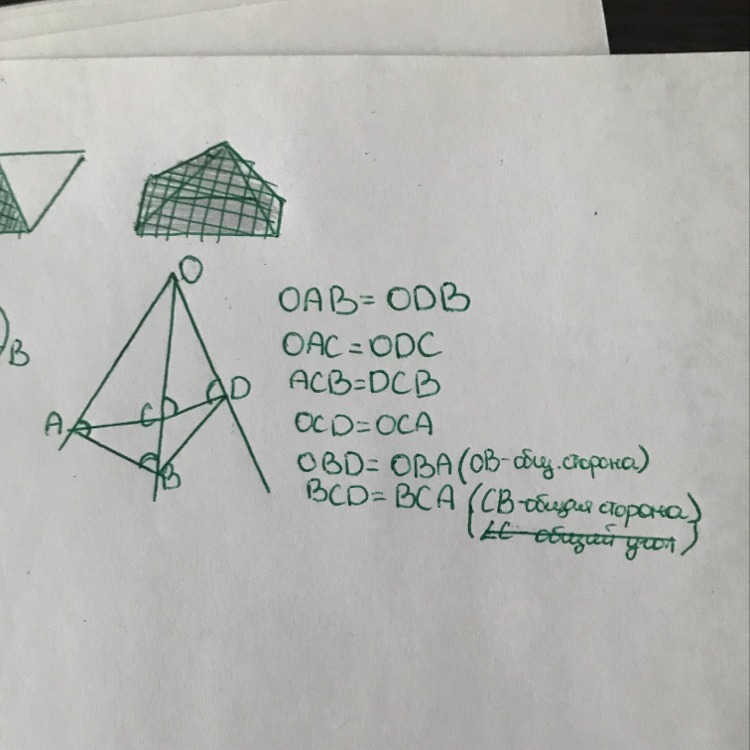 O
OAB = ODB
OAC = ODC
B
ACB = DCB
D
C
A
OCD = OCA
B
OBD = OBA (OB-общ. сторона)
BCD = BCA (CB-общая сторона)
∠C общий угол